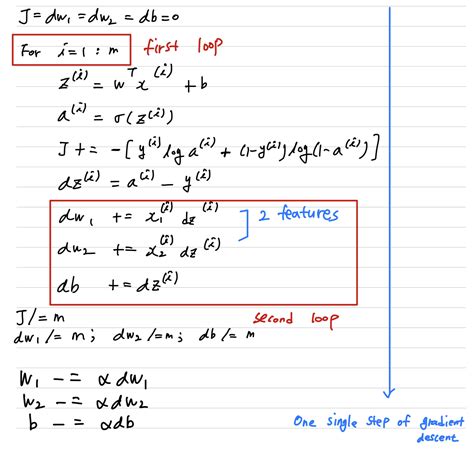 J = dw₁ = dw₂ = db = 0
For i = 1 : m first loop
z⁽ⁱ⁾ = wᵀ x⁽ⁱ⁾ + b
a⁽ⁱ⁾ = σ(z⁽ⁱ⁾)
J += -[y⁽ⁱ⁾ log a⁽ⁱ⁾ + (1-y⁽ⁱ⁾) log(1-a⁽ⁱ⁾)]
dz⁽ⁱ⁾ = a⁽ⁱ⁾ - y⁽ⁱ⁾
dw₁ += x₁⁽ⁱ⁾ dz⁽ⁱ⁾
dw₂ += x₂⁽ⁱ⁾ dz⁽ⁱ⁾
2 features
db += dz⁽ⁱ⁾
second loop
J /= m
dw₁ /= m; dw₂ /= m; db /= m
W₁ -= α dw₁
W₂ -= α dw₂
b -= α db
One single step of gradient
descent